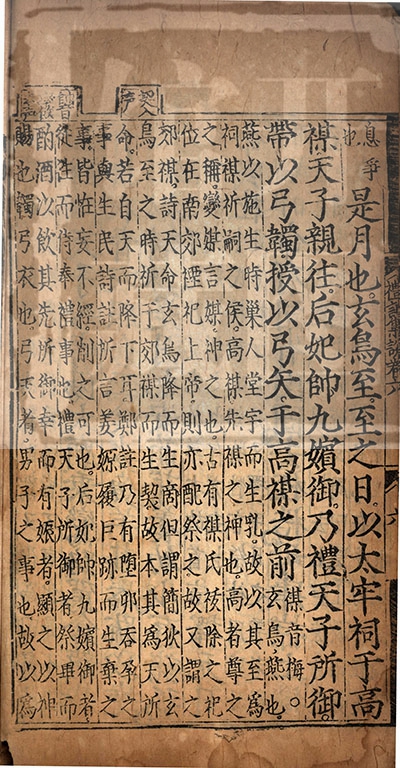 息爭也 是月也。玄鳥至。至之日。以太牢祠于高
禖。天子親往。后妃帥九嬪御。乃禮天子所御。
帶以弓韣。授以弓矢。于高禖之前 禖音梅。玄鳥。燕也。
燕以施生時。巢人堂宇而生乳。故以其至爲
祠禖祈嗣之候。高禖。先禖之神也。高者。尊之
之稱。變媒言禖。神之也。古有禖氏祓除之祀
位在南郊。禋祀上帝。則亦配祭之。故又謂之
郊禖。詩天命玄鳥。降而生商。但謂簡狄以玄
鳥至之時。祈于郊禖而生契。故本其爲天所
命。若自天而降下耳。鄭註乃有墮卵吞孕之
事。與生民詩註所言姜嫄履巨跡而生棄之
事。皆怪妄不經。削之可也。后妃帥九嬪御者。
從往而侍奉禮事也。禮天子所御者。祭畢而
酌酒以飲其先所御幸而有娠者。顯之以神
賜也。韣。弓衣也。弓矢者。男子之事也。故以爲
禮記集說卷六
六